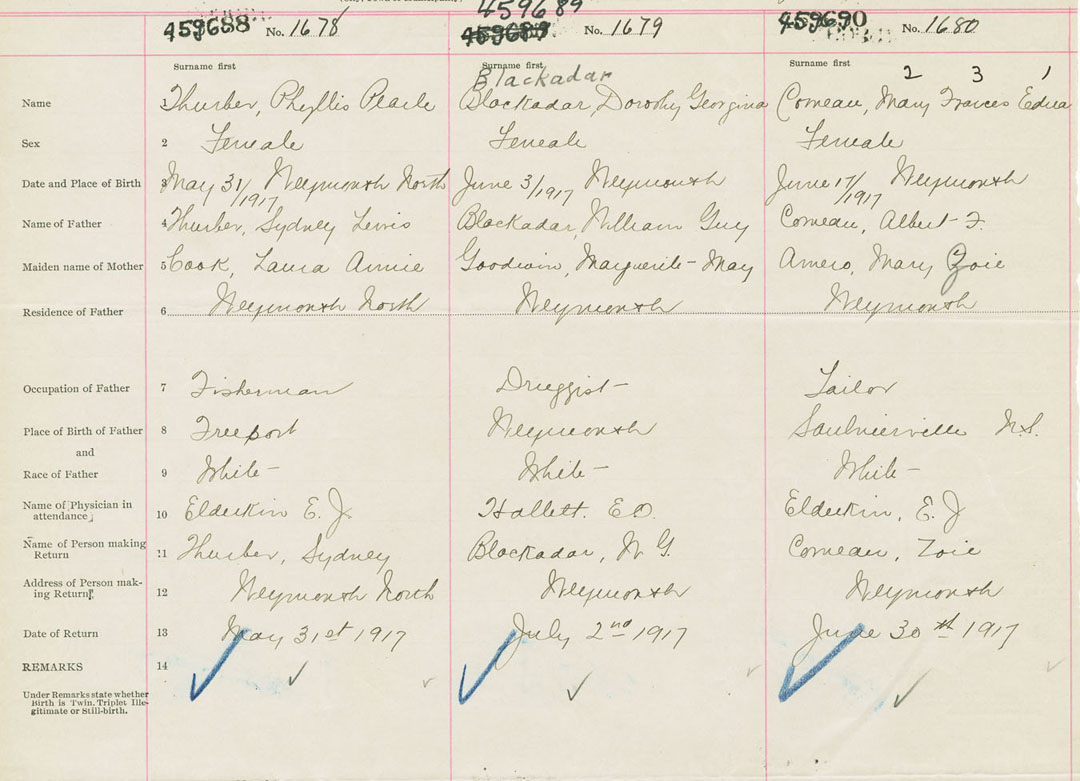 459689
459688 No. 1678 459689 No. 1679 459690 No. 1680
Surname first Surname first Surname first 2 3 1
Blackadar
Name 1 Thurber, Phyllis Pearle Blackadar, Dorothy Georgina Comeau, Mary Frances Edna
Sex 2 Female Female Female
Date and Place of Birth 3 May 31/1917, Weymouth North June 3/1917 Weymouth June 17/1917 Weymouth
Name of Father 4 Thurber, Sydney Lewis Blackadar, William Guy Comeau, Albert F.
Maiden name of Mother 5 Cook, Laura Annie Goodwin, Marguerite May Amero, Mary Zoie
Residence of Father 6 Weymouth North Weymouth Weymouth
Occupation of Father 7 Fisherman Druggist Tailor
Place of Birth of Father 8 Freeport Weymouth Saulnierville N.S.
and
Race of Father 9 White White White
Name of Physician in
attendance 10 Elderkin E. J. Hallett. E.O. Elderkin, E. J
Name of Person making
Return 11 Thurber, Sydney Blackadar, W G. Comeau, Zoie
Address of Person mak-
ing Return 12 Weymouth North Weymouth Weymouth
Date of Return 13 May 31st 1917 July 2nd 1917 June 30th 1917
REMARKS 14
Under Remarks state whether
Birth is Twin. Triplet Ille-
gitimate or Still-birth.